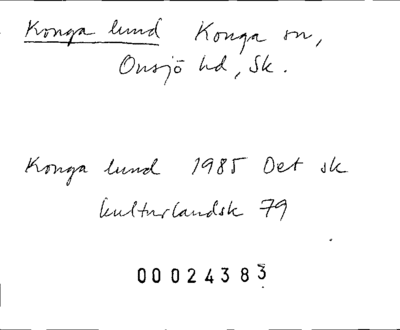 Konga lund Konga sn,
Onsjö hd, Sk.
Konga lund 1985 Det sk
kulturlandsk 79
00024383